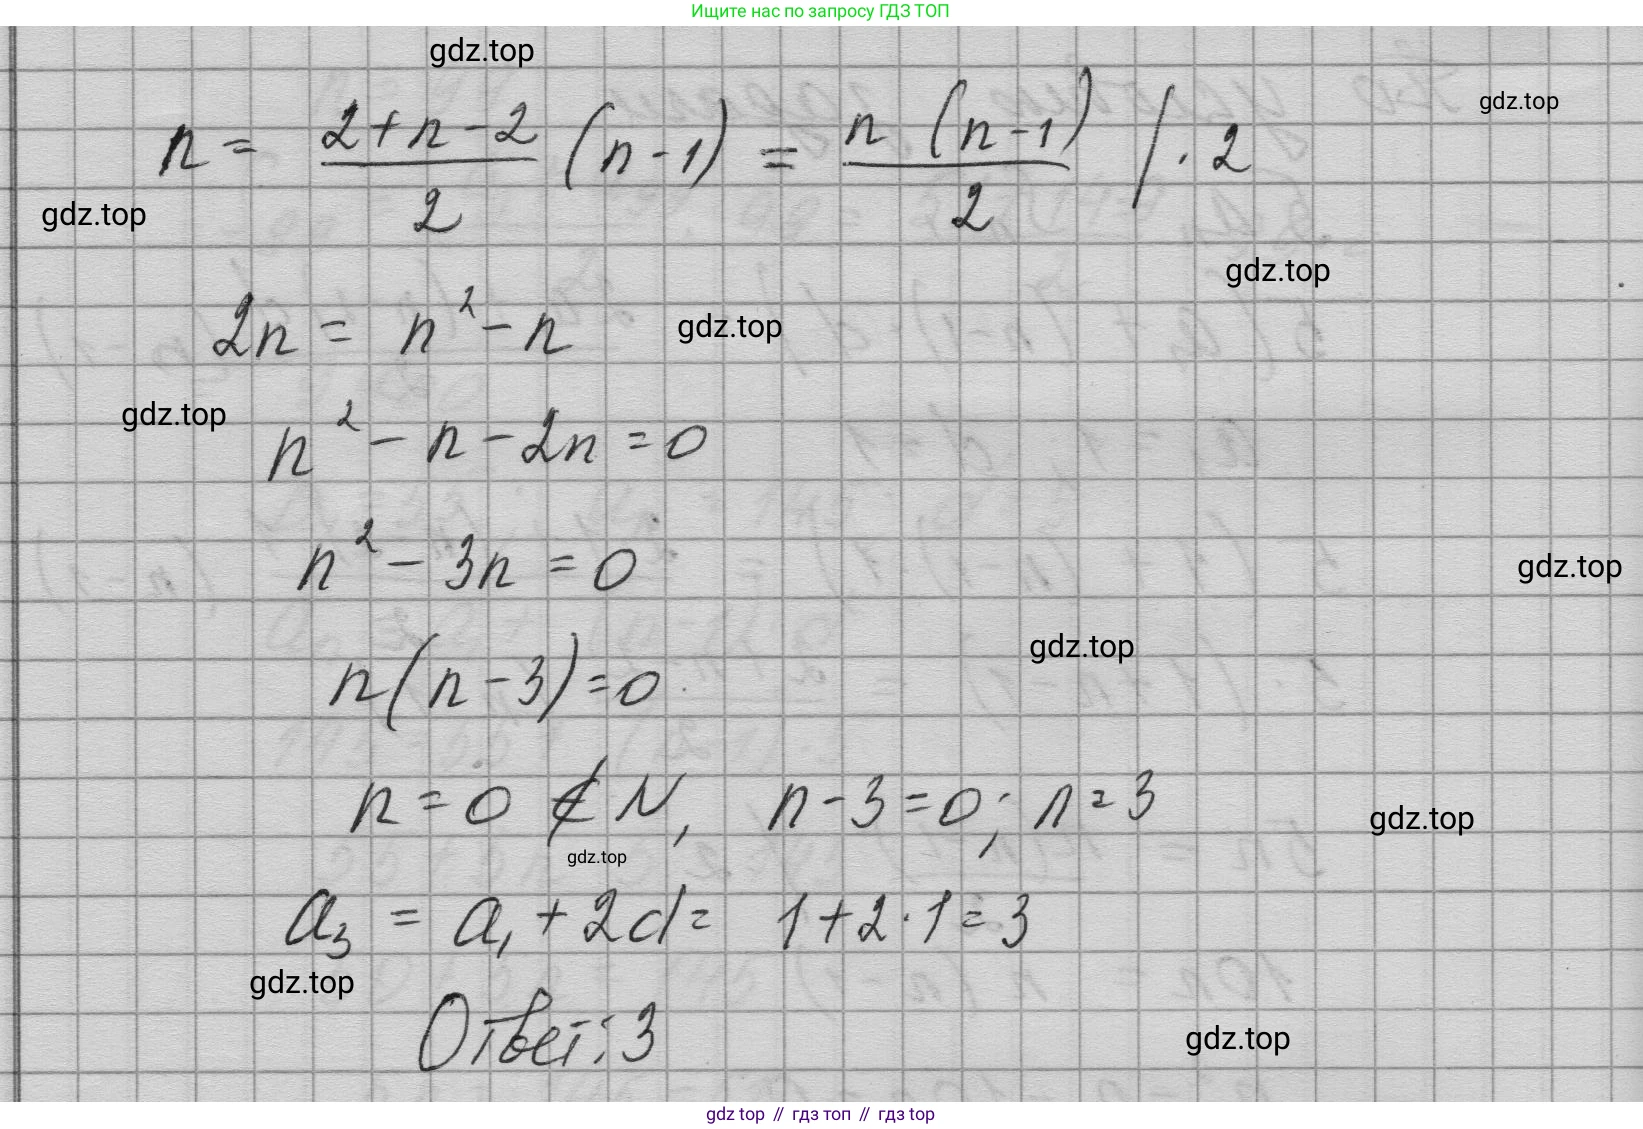 Ищите нас по запросу ГДЗ ТОП
gdz.top
n = (2+n-2)/2 (n-1) = n(n-1)/2 /·2
gdz.top
gdz.top
gdz.top
2n = n² - n
gdz.top
gdz.top
n² - n - 2n = 0
n² - 3n = 0
gdz.top
n(n-3)=0
gdz.top
n=0 ∉ N, n-3=0; n=3
gdz.top
gdz.top
a₃ = a₁ + 2d = 1+2·1=3
gdz.top
Ответ: 3
gdz.top
gdz top // гдз топ // gdz top